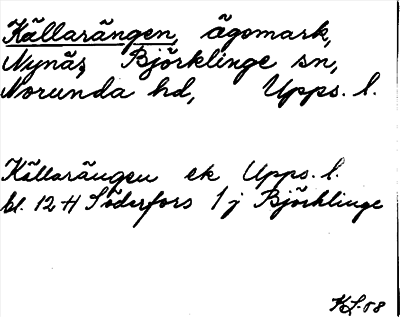 Källarängen, ägomark,
Nynäs, Björklinge sn,
Norunda hd, Upps. l.
Källarängen ek Upps. l.
bl. 12 H Söderfors 1 j Björklinge
KL-58